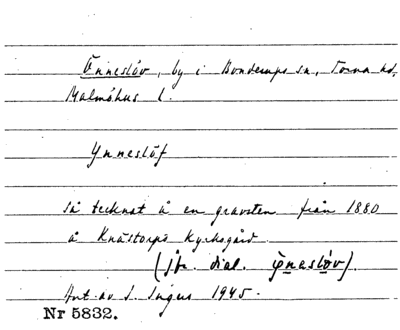 Önneslöv, by i Bonderups sn, Torna hd,
Malmöhus l.
Ynneslöf
så tecknat å en gravsten från 1880
å Knästorps kyrkogård.
(jfr dial. önaslöv).
Ant. av S. Ingers 1945.
Nr 5832.